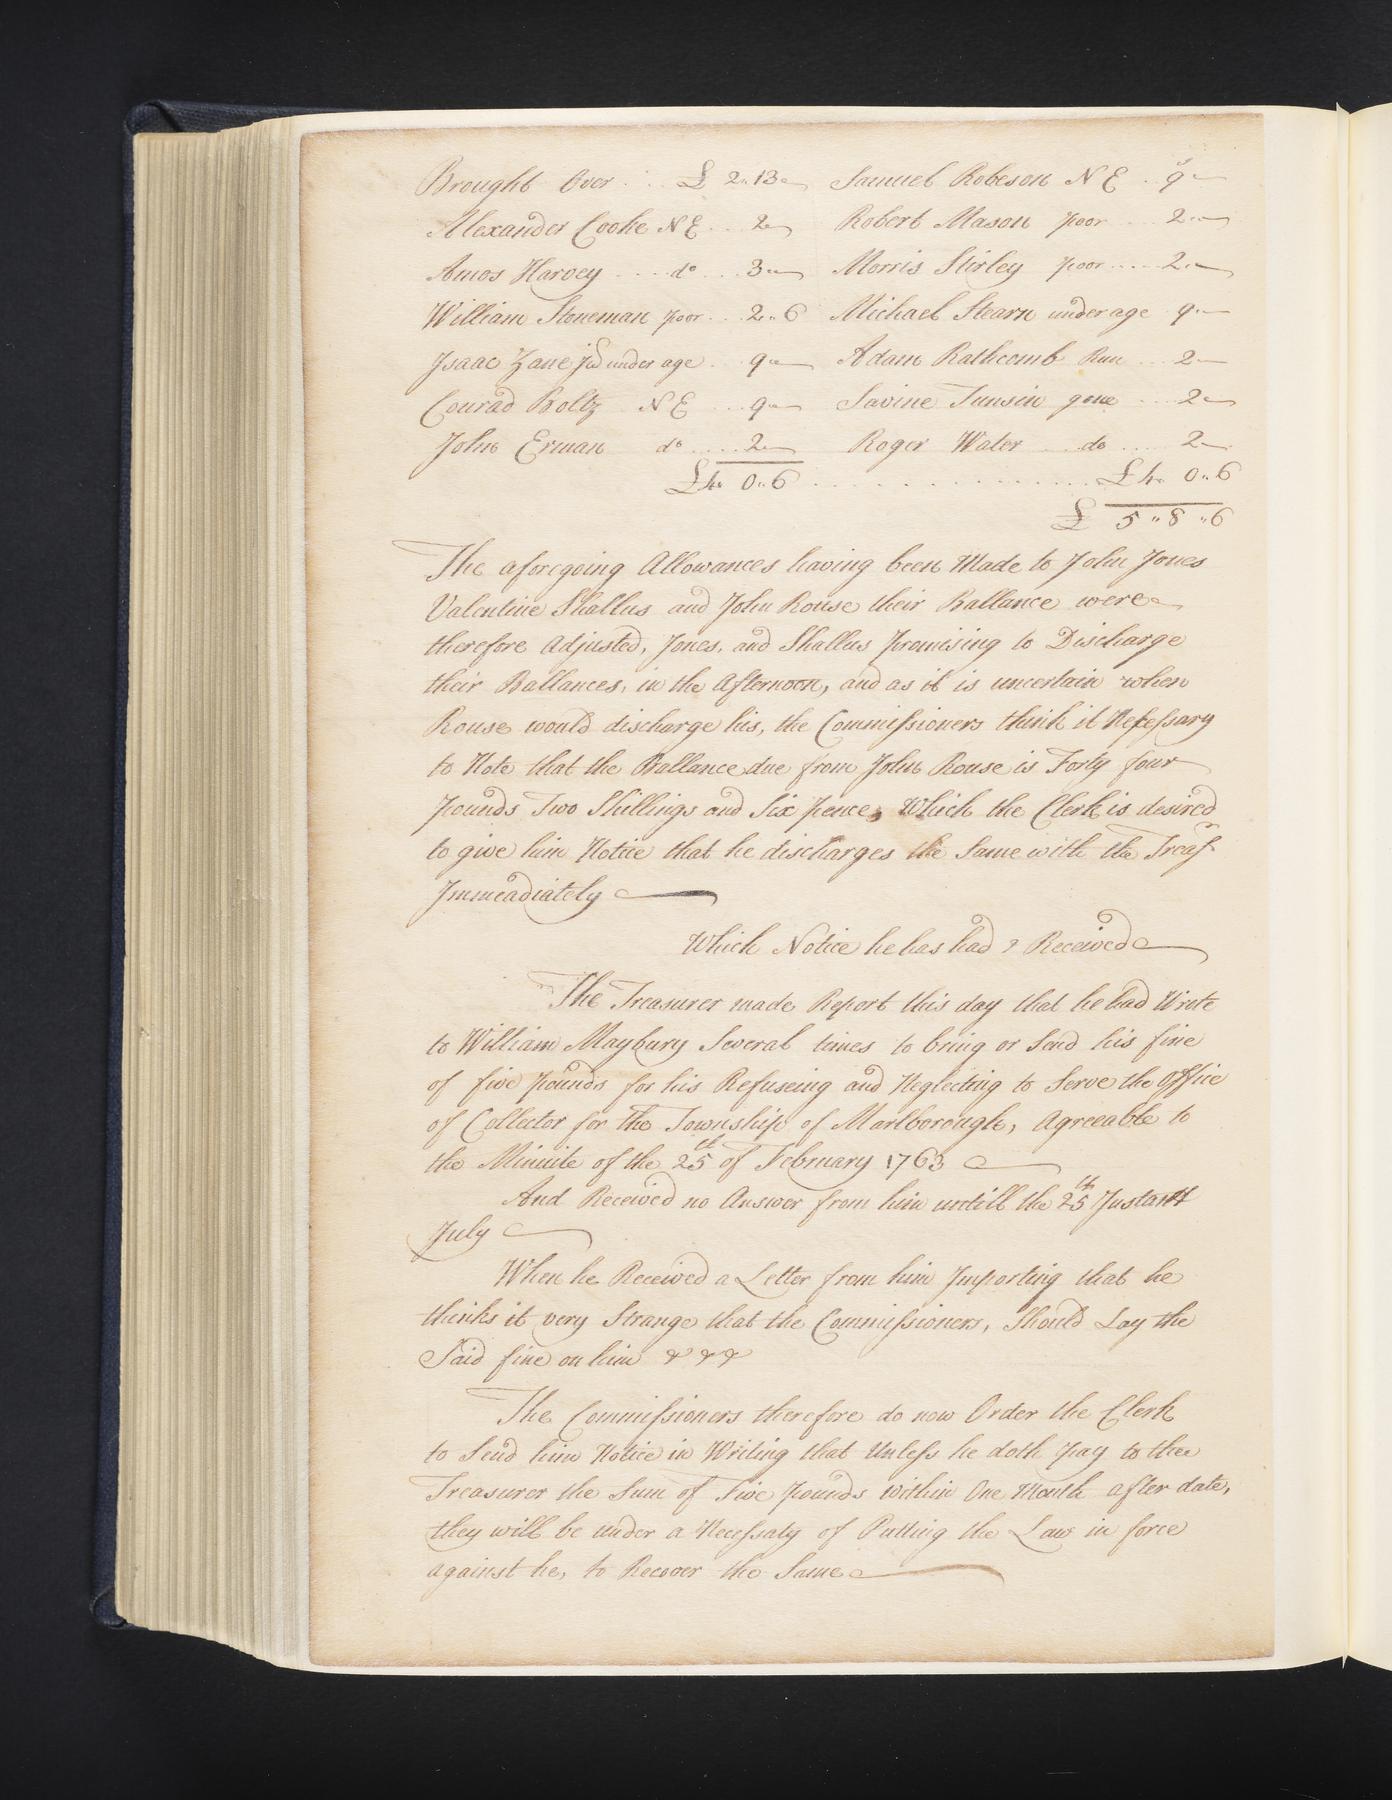 Brought Over .... £ 2..13..
Alexander Cooke N E ... 2..
Amos Harvey .... do ... 3..
William Stoneman poor ... 2..6
Isaac Zane Jur under age .. 9..
Conrad Boltz N E ... 9..
John Erman do ..... 2..
£4.. 0..6
Samuel Robeson N E .. 9s..
Robert Mason poor .... 2..
Morris Stirley poor ..... 2..
Michael Stearn under age 9..
Adam Rathcomb Run ... 2..
Savine Tunsin gone .... 2..
Roger Water do .... 2..
£4.. 0..6
£ 5..8..6
The aforegoing Allowances having been Made to John Jones
Valentine Shallus and John Rouse their Ballance were
therefore Adjusted, Jones, and Shallus promising to Discharge
their Ballances, in the Afternoon, and as it is uncertain when
Rouse would discharge his, the Commissioners think it Nesessary
to Note that the Ballance due from John Rouse is Forty four
pounds Two Shillings and Six pence, Which the Clerk is desired
to give him Notice that he discharges the Same with the Treas
Immeadiately
Which Notice he has had & Received
The Treasurer made Report this day that he had Wrote
to William Maybury Several times to bring or Send his fine
of five pounds for his Refuseing and Neglecting to Serve the Office
of Collector for the Township of Marlborough, Agreeable to
the Minuite of the 25th of February 1763
And Received no Answer from him untill the 25th Instant
July
When he Received a Letter from him Importing that he
thinks it very Strange that the Commissioners, Should Lay the
Said fine on him & & &
The Commissioners therefore do now Order the Clerk
to Send him Notice in Writing that Unless he doth pay to the
Treasurer the Sum of Five pounds within One Month after date,
they will be under a Necessaty of Putting the Law in force
against he, to Recover the Same